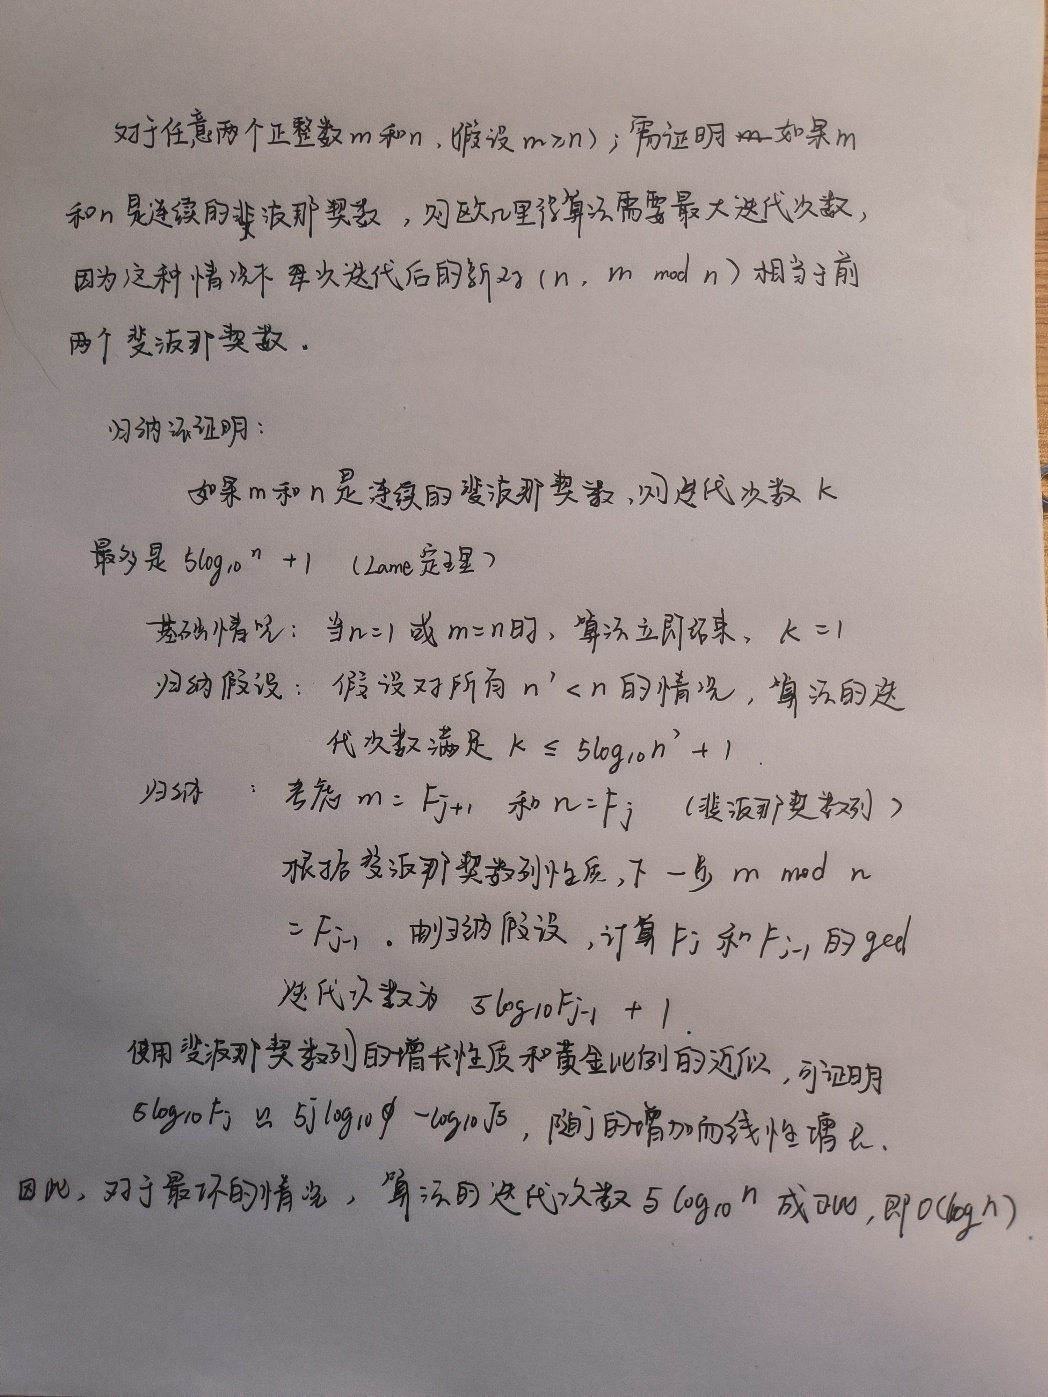 对于任意两个正整数m和n，(假设m≥n)；需证明 如果m
和n是连续的斐波那契数，则欧几里得算法需要最大迭代次数，
因为这种情况下 每次迭代后的新对(n, m mod n)相当于前
两个斐波那契数.
归纳法证明：
如果m和n是连续的斐波那契数，则迭代次数k
最多是 5log₁₀ⁿ +1 (Lame定理)
基础情况：当n=1 或 m=n时，算法立即结束，k=1
归纳假设：假设对所有n'<n的情况，算法的迭
代次数满足 k ≤ 5log₁₀n' + 1.
归纳 ：考虑 m = Fj+1 和 n=Fj (斐波那契数列)
根据斐波那契数列性质，下一步 m mod n
= Fj-1. 由归纳假设，计算 Fj 和 Fj-1 的gcd
迭代次数为 5log₁₀Fj-1 + 1.
使用斐波那契数列的增长性质和黄金比例的近似，可证明
5log₁₀Fj ≌ 5jlog₁₀φ -log₁₀√5，随j的增加而线性增长.
因此，对于最坏的情况，算法的迭代次数 5log₁₀ⁿ 成正比，即O(logn).